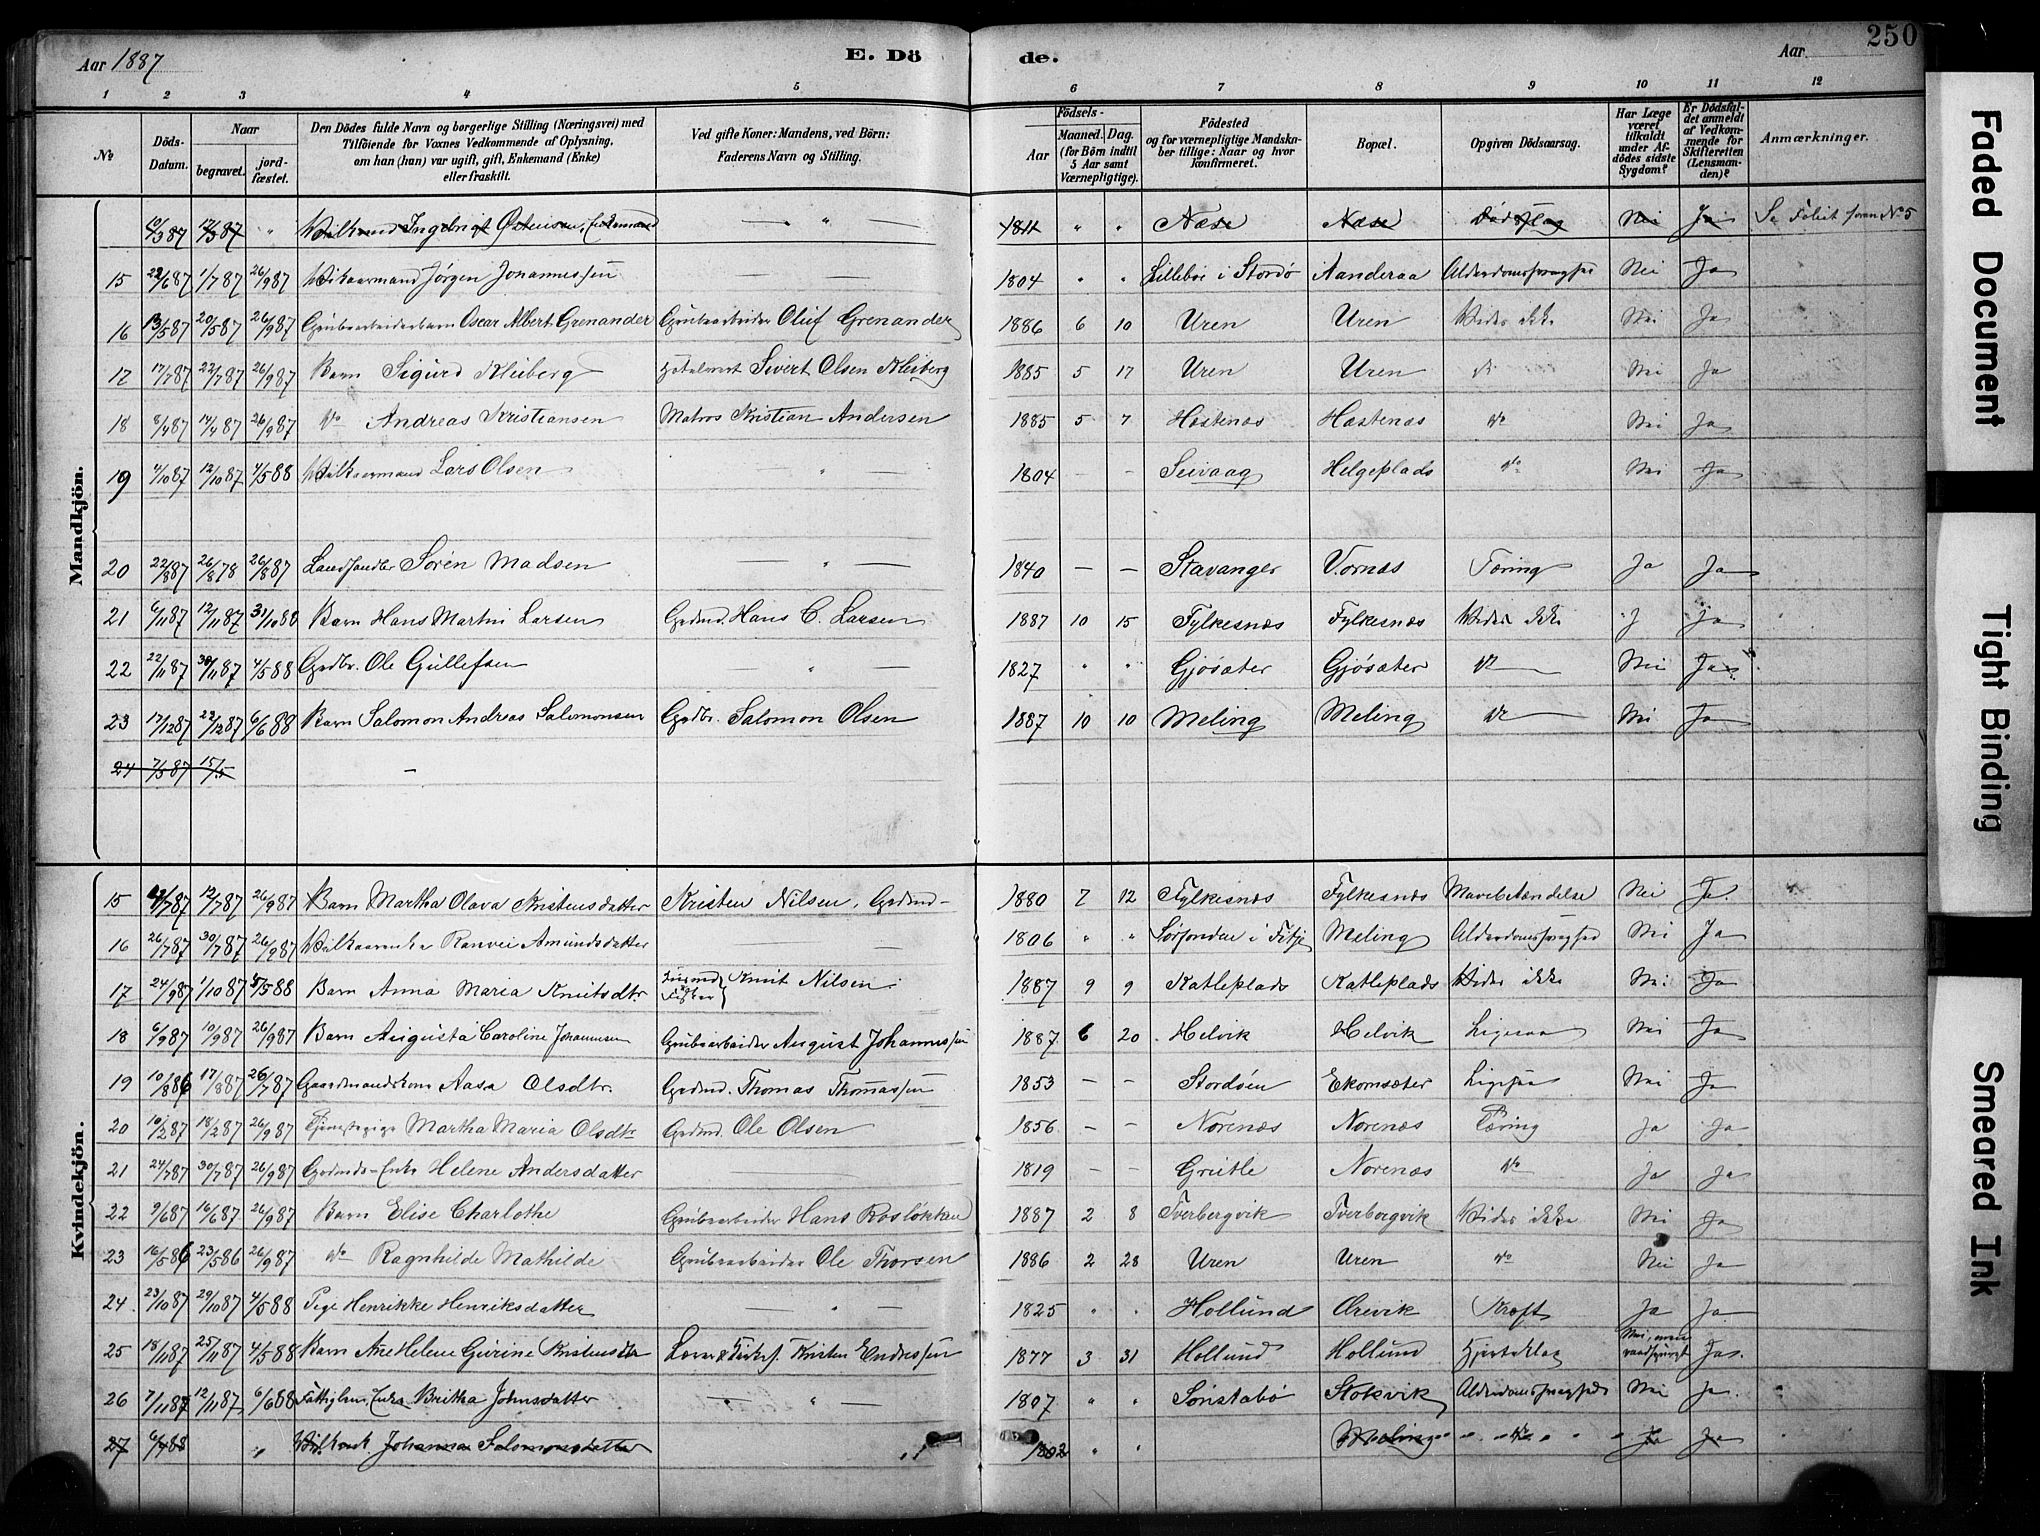 Aar 1887 E. Dö de. Aar 250
1 2 3 4 5 6 7 8 9 10 11 12
№ Döds-Datum. Naar begravet. jord-fæstet. Den Dödes fulde Navn og borgerlige Stilling (Næringsvei) med Tilföiende for Voxnes Vedkommende af Oplysning, om han (hun) var ugift, gift, Enkemand (Enke) eller fraskilt. Ved gifte Koner: Mandens, ved Börn: Faderens Navn og Stilling. Födsels- Aar Maaned. Dag. (for Börn indtil 5 Aar samt Værnepligtige). Födested og for værnepligtige Mandskaber tillige: Naar og hvor konfirmeret. Bopæl. Opgiven Dödsaarsag. Har Læge været tilkaldt under Afdödes sidste Sygdom? Er Dödsfaldet anmeldt af Vedkommende for Skifteretten (Lensmanden)? Anmærkninger.
Mandkjön.
10/3 87 17/3 87 " Ingebrigt Østensen, Enkemand — " — 1811 " " Næse Næse Nei Ja Se Foliet foran No 5
15 22/6 87 1/7 87 26/9 87 Vilkaarmand Jørgen Johannessen — — 1804 " " Lillebø i Stordø Aanderaa Alderdomssvaghed Nei Ja
16 13/5 87 20/5 87 26/9 87 Grubearbeiderbarn Oscar Albert Grenander Grubearbeider Oluf Grenander 1886 6 10 Uren Uren Vides ikke Nei Ja
17 17/7 87 22/7 87 26/9 87 Barn Sigurd Kleiberg Sivert Olsen Kleiberg 1885 5 17 Uren Uren do Nei Ja
18 8/4 87 14/4 87 26/9 87 do Andreas Kristiansen Matros Kristian Andersen 1885 5 7 Hestenæs Hestenæs do Nei Ja
19 4/10 87 12/10 87 4/5 88 Vilkaarmand Lars Olsen " — 1804 — — Seivaag Helgeplads do Nei Ja
20 22/8 87 26/8 78 26/8 87 Landhandler Sören Madsen — " — 1840 — — Stavanger Vornæs Tæring Ja Ja
21 6/11 87 12/11 87 31/10 88 Barn Hans Martin Larsen Gaardmd. Hans C. Larsen 1887 10 15 Fylkesnæs Fylkesnæs Vides ikke J Ja
22 22/11 87 30/11 87 4/5 88 Gardbr. Ole Gullefsen — " — 1827 " " Gjøsæter Gjøsæter do Nei Ja
23 17/12 87 22/12 87 6/6 88 Barn Salomon Andreas Salomonsen Gardbr. Salomon Olsen 1887 10 10 Meling Meling do Nei Ja
24 7/5 87 15/5 —
Kvindekjön.
15 7/7 87 12/7 87 26/9 87 Barn Martha Olava Kristensdatter Kristen Nilsen, Gardmd — 1880 7 12 Fylkesnæs Fylkesnæs Mavebetændelse Nei Ja.
16 26/7 87 30/7 87 26/9 87 Vilkaarenke Ranvei Amundsdatter — — 1806 " " Sørfonden i Fitje Meling Alderdomssvaghed Nei Ja
17 24/9 87 1/10 87 4/5 88 Barn Anna Maria Knutsdtr Knut Nilsen 1887 9 9 Katleplads Katleplads Vides ikke Nei Ja
18 6/9 87 10/9 87 26/9 87 Barn Augusta Caroline Johannsen Grubearbeider August Johannessen 1887 6 20 Helvik Helvik Ligesaa Nei Ja
19 10/8 86 17/8 87 26/7 87 Gaardmandskone Aasa Olsdtr. Gardmd. Thomas Thomassen 1853 — — Stordøen Ekornsæter Ligesaa Nei Ja
20 10/2 87 18/2 87 26/9 87 Tjenestepige Martha Maria Olsdtr Gardmd. Ole Olsen 1856 — — Norenæs Norenæs Tæring Ja Ja
21 24/7 87 30/7 87 26/9 87 Gardmds-Enke Helene Andersdatter — 1819 — — Grutle Norenæs do Ja Ja
22 9/6 87 16/6 87 26/9 87 Barn Elise Charlothe Grubearbeider Hans Rosløkken 1887 2 8 Tverborgvik Tverborgvik Vides ikke Nei Ja
23 16/5 86 23/5 86 26/9 87 do Ragnhilde Mathilde Grubearbeider Ole Thorsen 1886 2 28 Uren Uren do Nei Ja
24 23/10 87 29/10 87 4/5 88 Pige Henrikke Henriksdatter — " — 1825 " " Hollund Ørevik Kræft Ja Ja
25 18/11 87 25/11 87 4/5 88 Barn Ane Helene Gurine Kristensdtr Lærer & Kirkes. Kristen Endresen 1877 3 31 Hollund Hollund Hjerteslag Nei, men raadspurgt Ja.
26 7/11 87 12/11 87 6/6 88 Fattiglem, Enke Britha Johnsdatter — " — 1807 " " Sønstabø Stokvik Alderdomssvaghed Nei Ja.
27 6/7 88 " Johanna Salomonsdatter " 1802 " " Meling do Ja Ja
Faded Document
Tight Binding
Smeared Ink